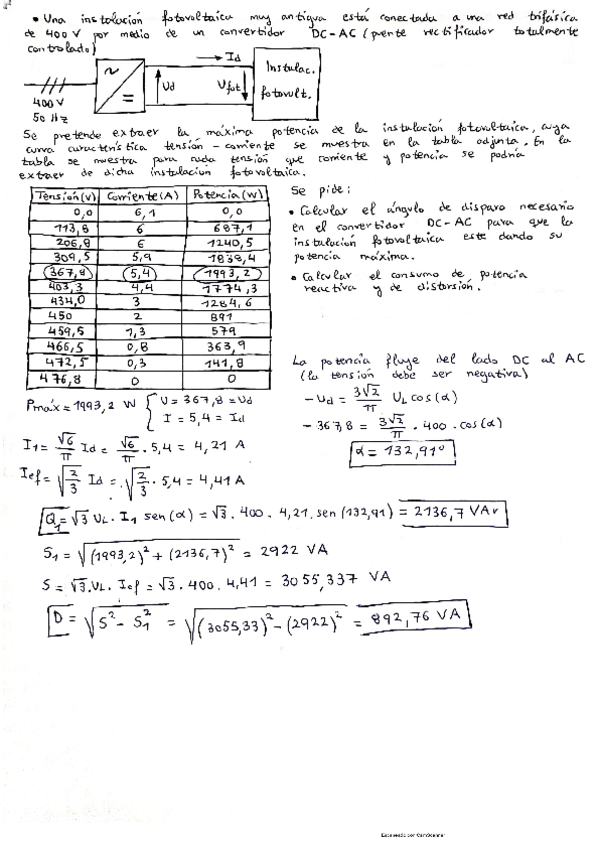 • Una instalación fotovoltaica muy antigua está conectada a una red trifásica
de 400 V por medio de un convertidor DC-AC (puente rectificador totalmente
controlado)
Id
~
=
Ud
Ufot
Instalac.
fotovolt.
400 V
50 Hz
Se pretende extraer la máxima potencia de la instalación fotovoltaica, cuya
curva característica tensión - corriente se muestra en la tabla adjunta. En la
tabla se muestra para cada tensión que corriente y potencia se podría
extraer de dicha instalación fotovoltaica.
Tensión (V) Corriente (A) Potencia (W)
0,0 6,1 0,0
113,8 6 687,1
206,8 6 1240,5
309,5 5,9 1838,4
367,8 5,4 1993,2
403,3 4,4 1774,3
434,0 3 1284,6
450 2 891
459,5 1,3 579
466,5 0,8 363,9
472,5 0,3 141,8
476,8 0 0
Se pide:
• Calcular el ángulo de disparo necesario
en el convertidor DC-AC para que la
instalación fotovoltaica este dando su
potencia máxima.
• Calcular el consumo de potencia
reactiva y de distorsión.
La potencia fluye del lado DC al AC
(la tensión debe ser negativa)
- Ud = 3√2/π UL cos(α)
- 367,8 = 3√2/π · 400 · cos(α)
α = 132,91º
Pmáx = 1993,2 W { U = 367,8 = Ud
I = 5,4 = Id
I1 = √6/π Id = √6/π · 5,4 = 4,21 A
Ief = √2/3 Id = √2/3 · 5,4 = 4,41 A
Q1 = √3 UL · I1 sen(α) = √3 · 400 · 4,21 · sen(132,91) = 2136,7 VAr
S1 = √(1993,2)² + (2136,7)² = 2922 VA
S = √3 · UL · Ief = √3 · 400 · 4,41 = 3055,337 VA
D = √S² - S1² = √(3055,33)² - (2922)² = 892,76 VA
Escaneado con CamScanner